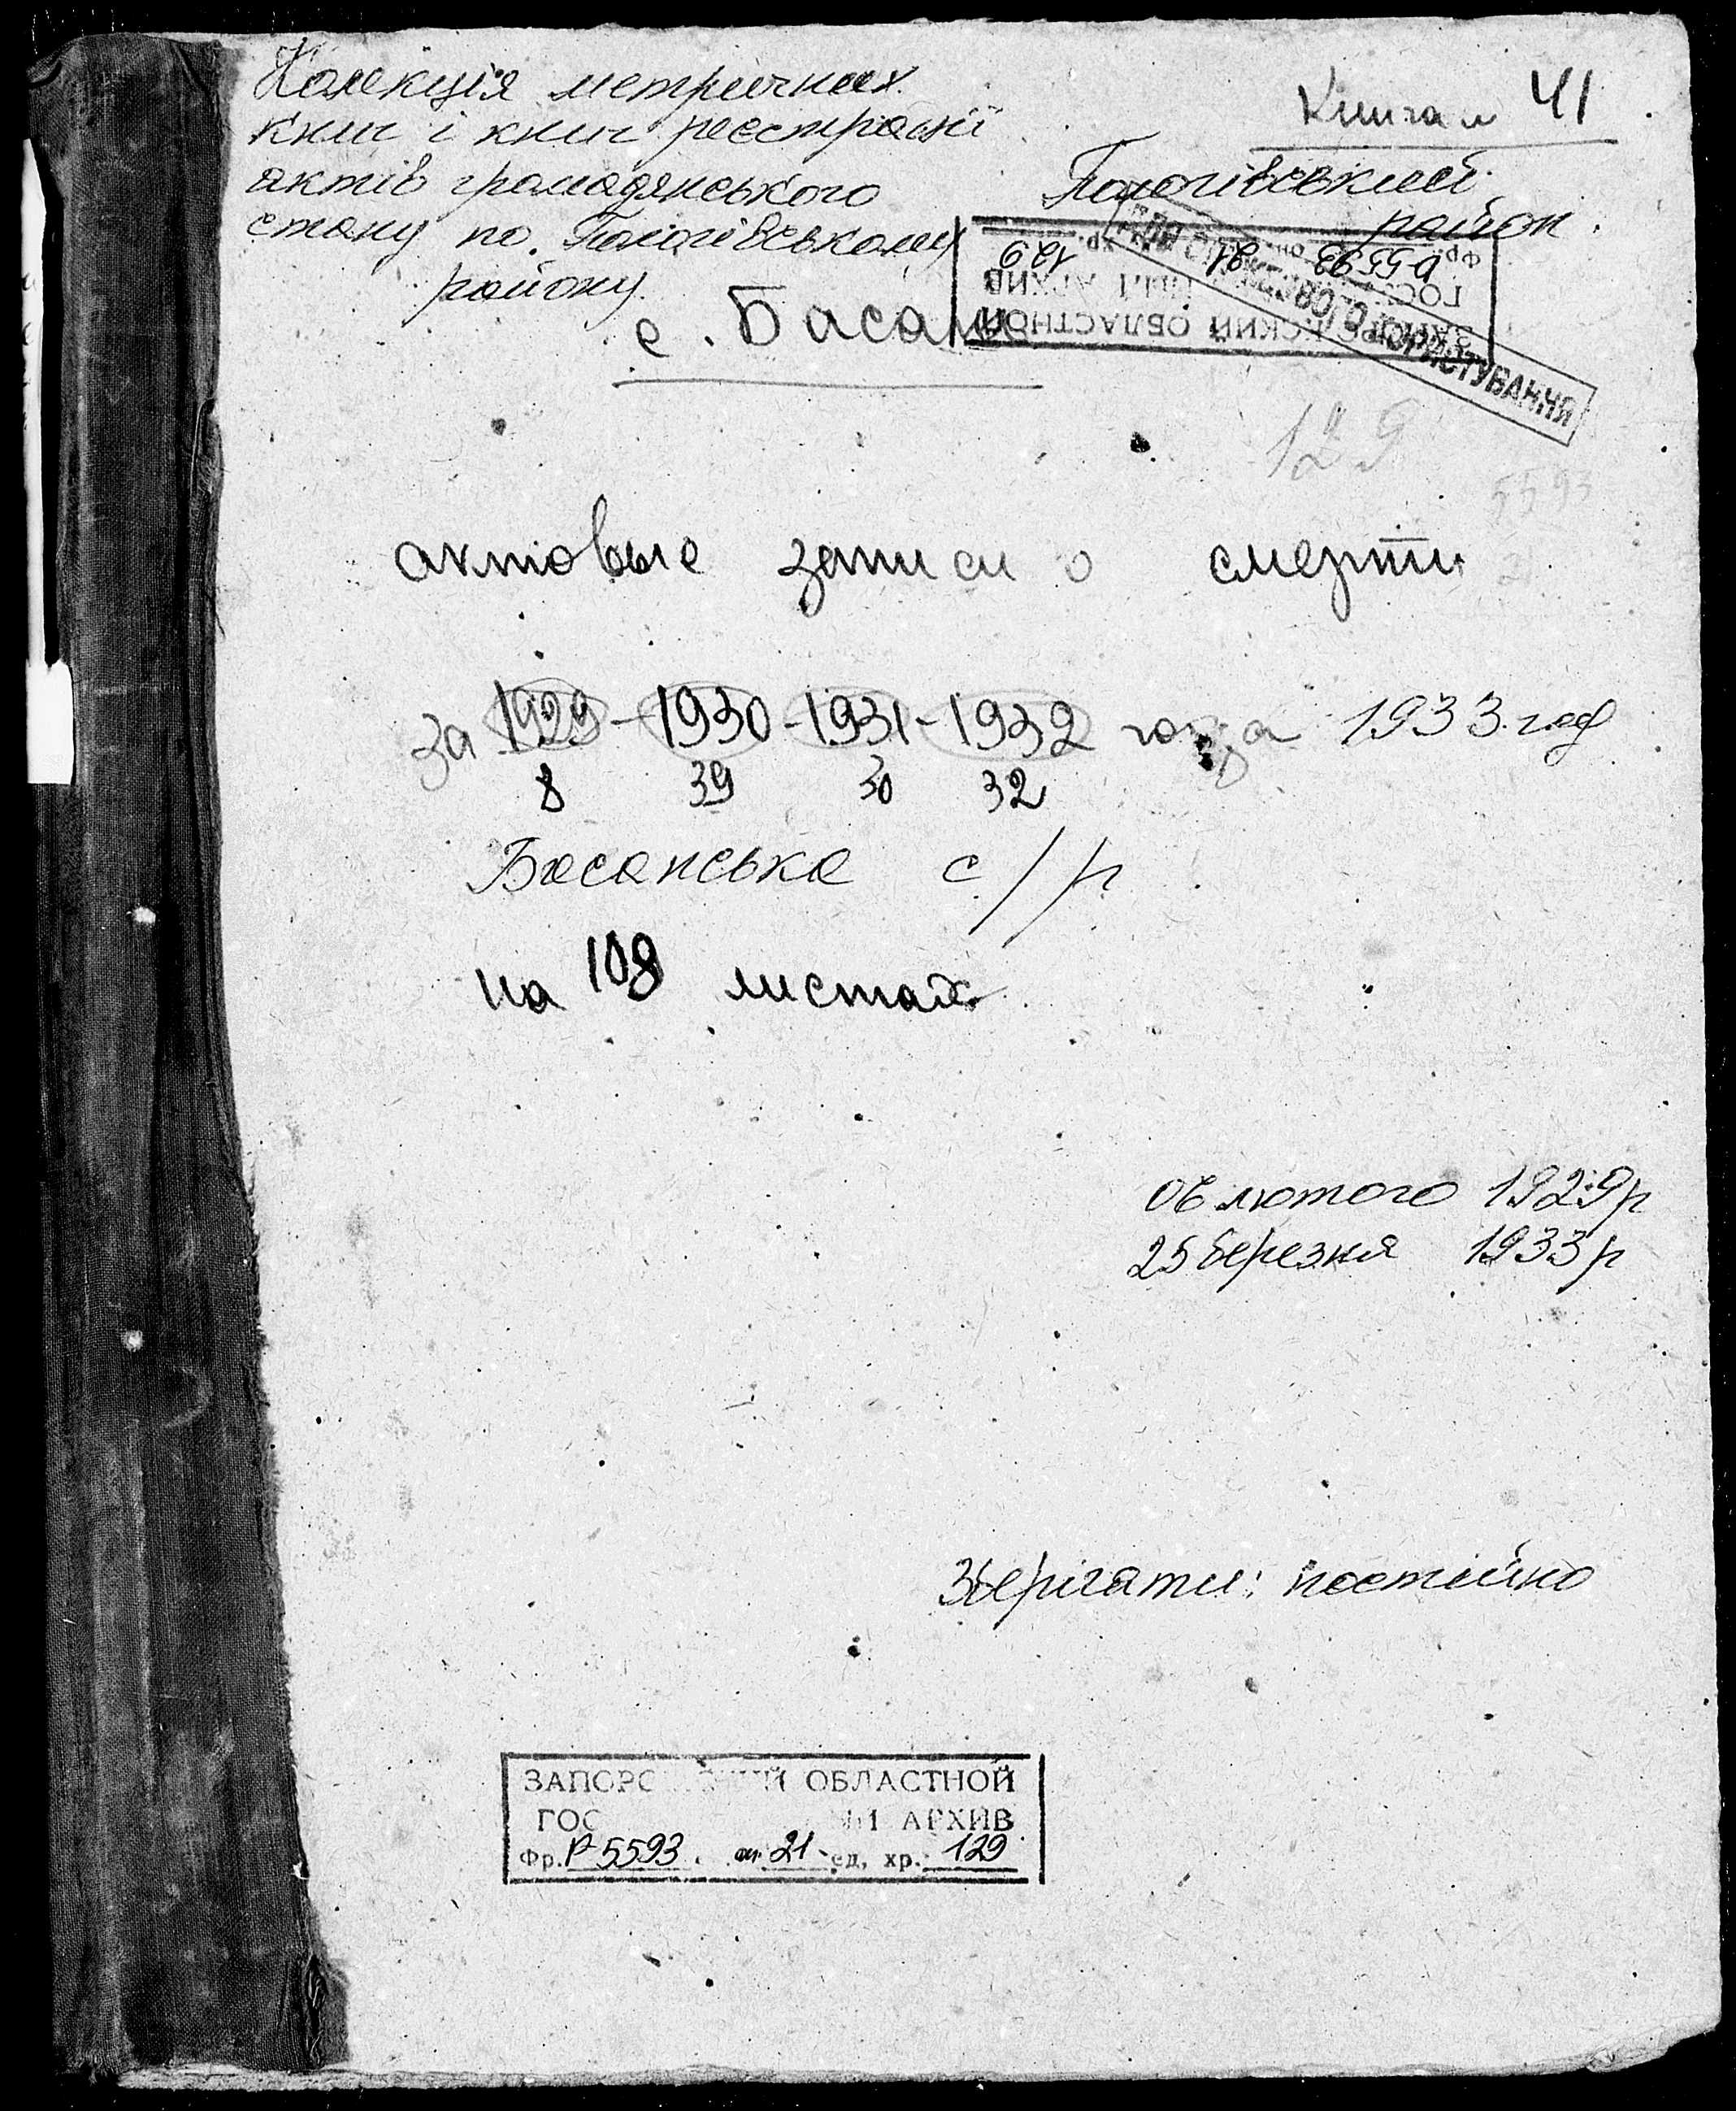 Колекція метричних
книг і книг реєстрації
актів громадянського
стану по Пологівському
району
Книга 41
Пологівський
район
с. Басань
ЗАПОРОЖСКИЙ ОБЛАСТНОЙ
ГОС АРХИВ
Фр. Р-5593 оп. 21 ед. хр. 129
КОРИСТУВАННЯ
129
5593
актовые записи о смерти
за 1929 - 1930 - 1931 - 1932 года 1933 год
8 39 30 32
Басанська с/р
на 108 листах
06 лютого 1929 р
25 березня 1933 р
Зберігати: постійно
ЗАПОРО ИЙ ОБЛАСТНОЙ
ГОС АРХИВ
Фр. Р-5593 оп. 21 ед. хр. 129